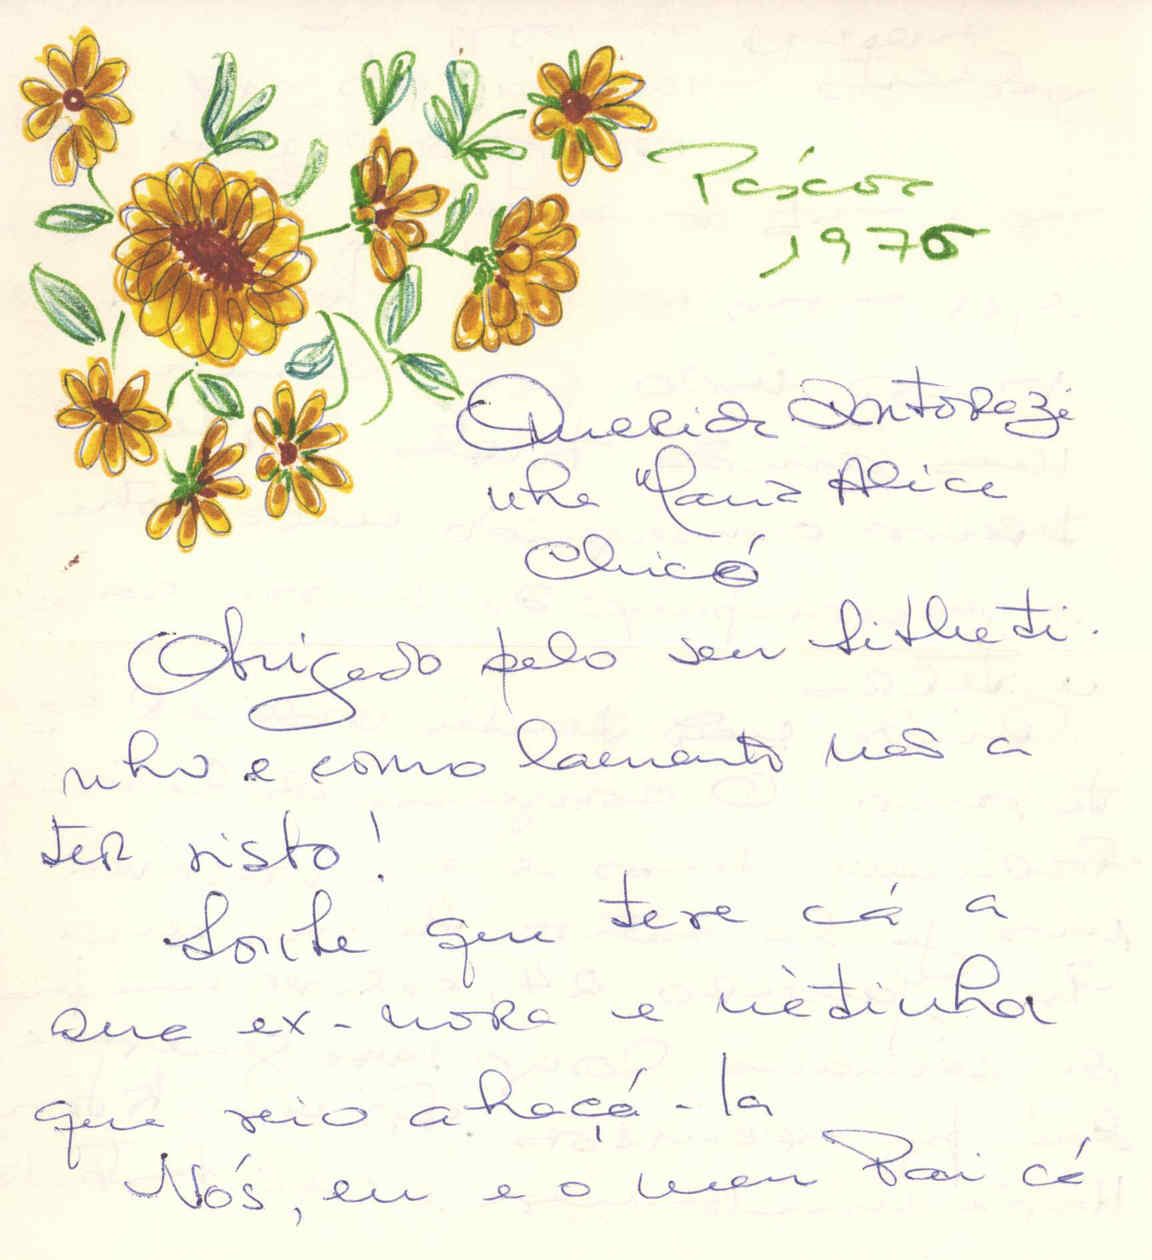 Páscoa
1976
Querida Antorazi
nha Maria Alice
Chicó
Obrigado pelo seu bilheti-
nho e como lamento não a
ter visto!
Sorte que teve cá a
sua ex-nora e nètinha
que veio abraçá-la
Nós, eu e o meu Pai cá